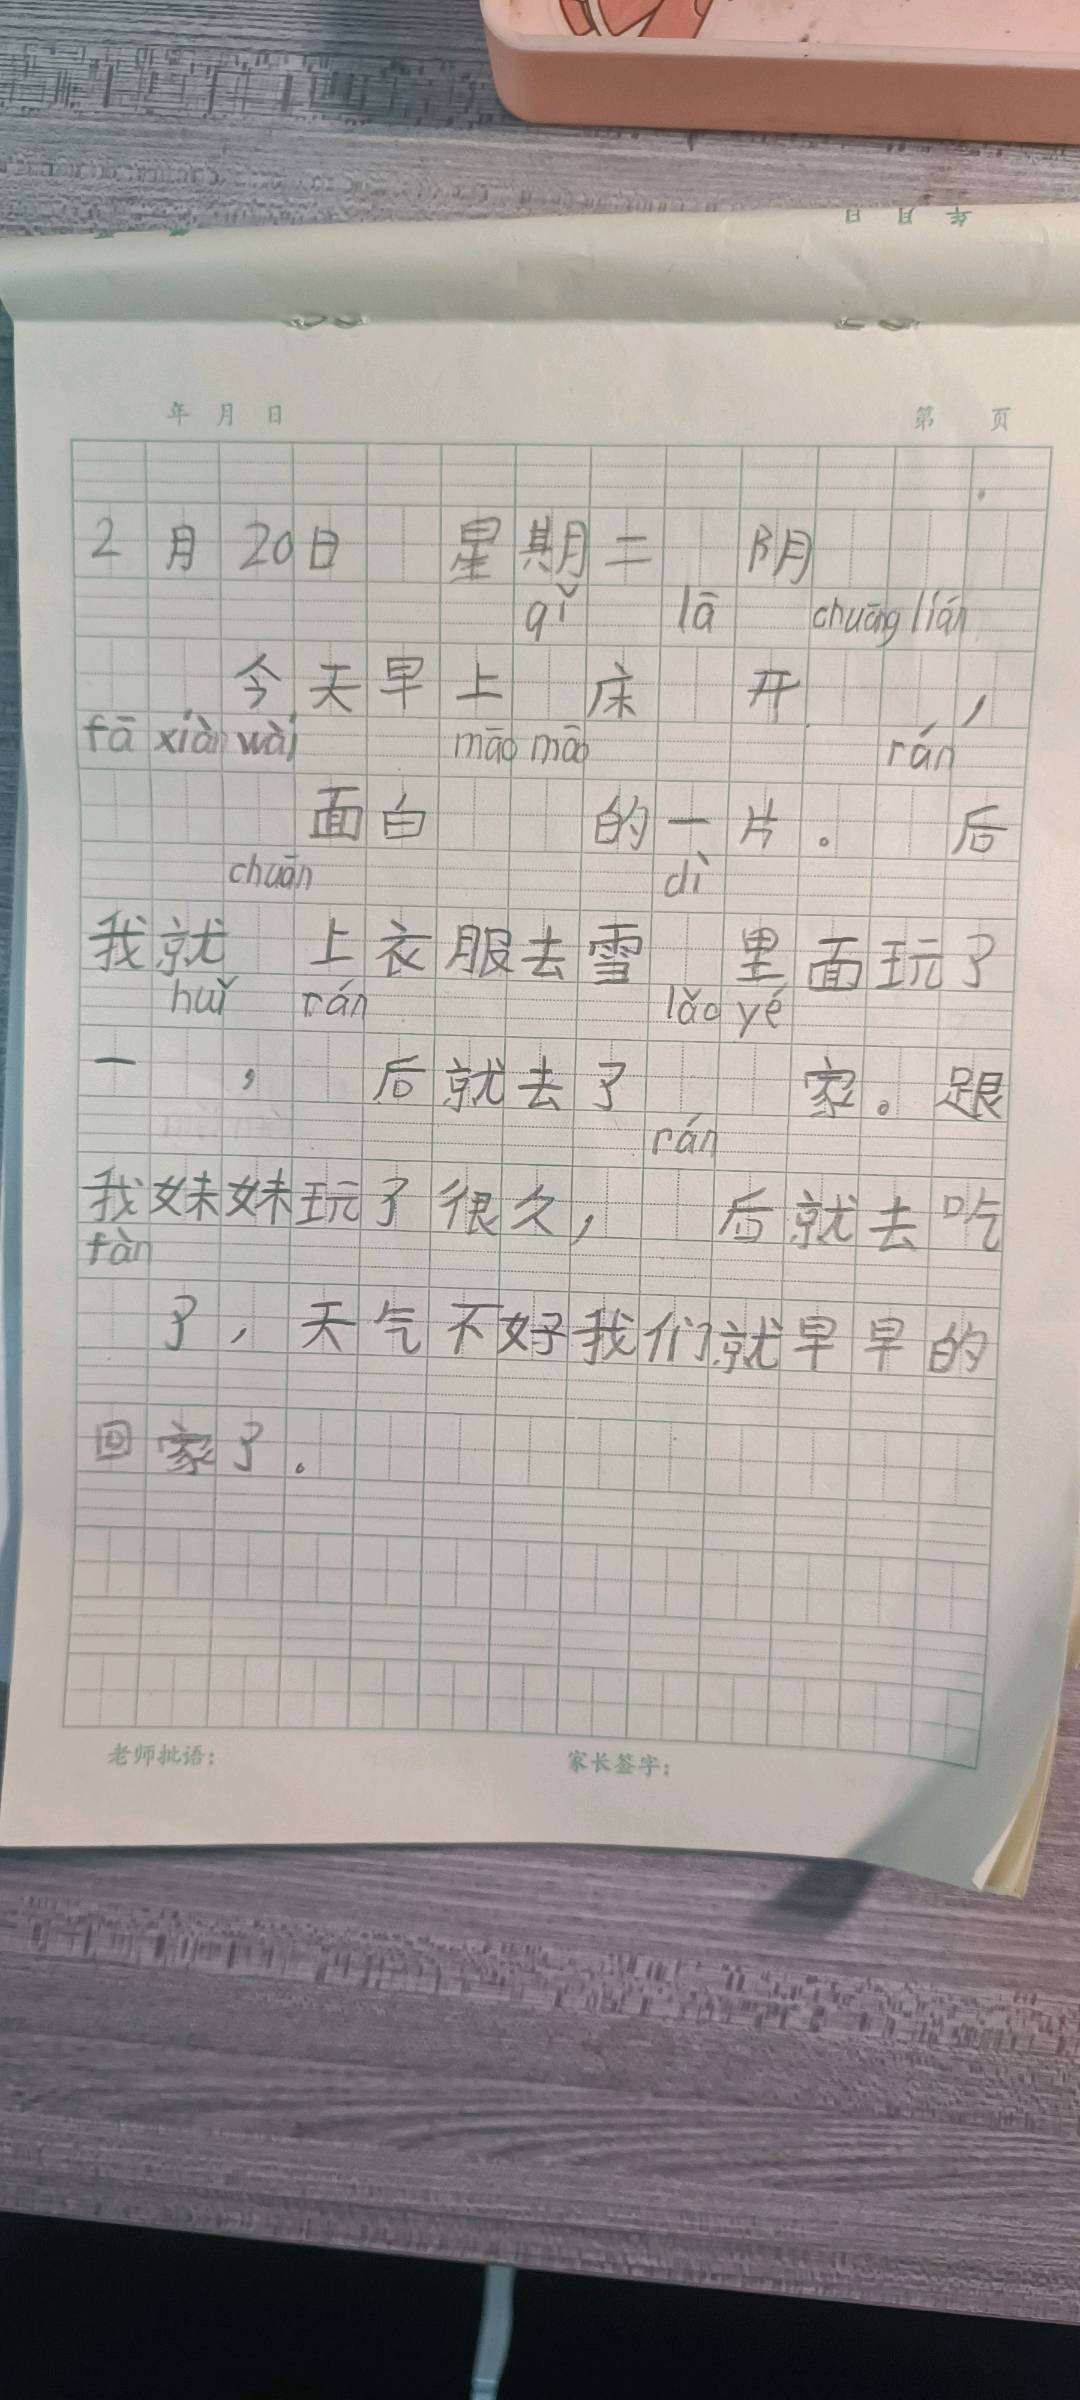 日 月 年
年 月 日 第 页
2月20日 星期二 阴
qǐ lā chuāng lián
今天早上 床 开 ，
fā xiàn wài māo māo rán
面白 的一片。 后
chuān dì
我就 上衣服去雪 里面玩了
huǐ rán lǎo yé
一 ， 后就去了 家。跟
rán
我妹妹玩了很久， 后就去吃
fàn
了，天气不好我们就早早的
回家了。
老师批语： 家长签字：